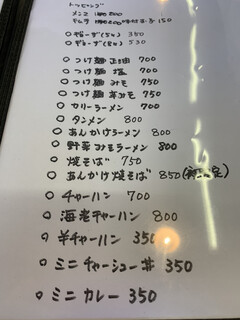 トッピング
メンマ 200
キムチ 200 味付玉子 150
○ ギョーザ(5ヶ) 350
○ ギョーザ(8ヶ) 530
○ つけ麺 正油 700
○ つけ麺 塩 700
○ つけ麺 みそ 750
○ つけ麺 辛みそ 750
○ カリーラーメン 700
○ タンメン 800
○ あんかけラーメン 800
○ 野菜みそラーメン 800
○ 焼そば 750
○ あんかけ焼そば 850
○ チャーハン 700
○ 海老チャーハン 800
○ 半チャーハン 350
○ ミニチャーシュー丼 350
○ ミニカレー 350